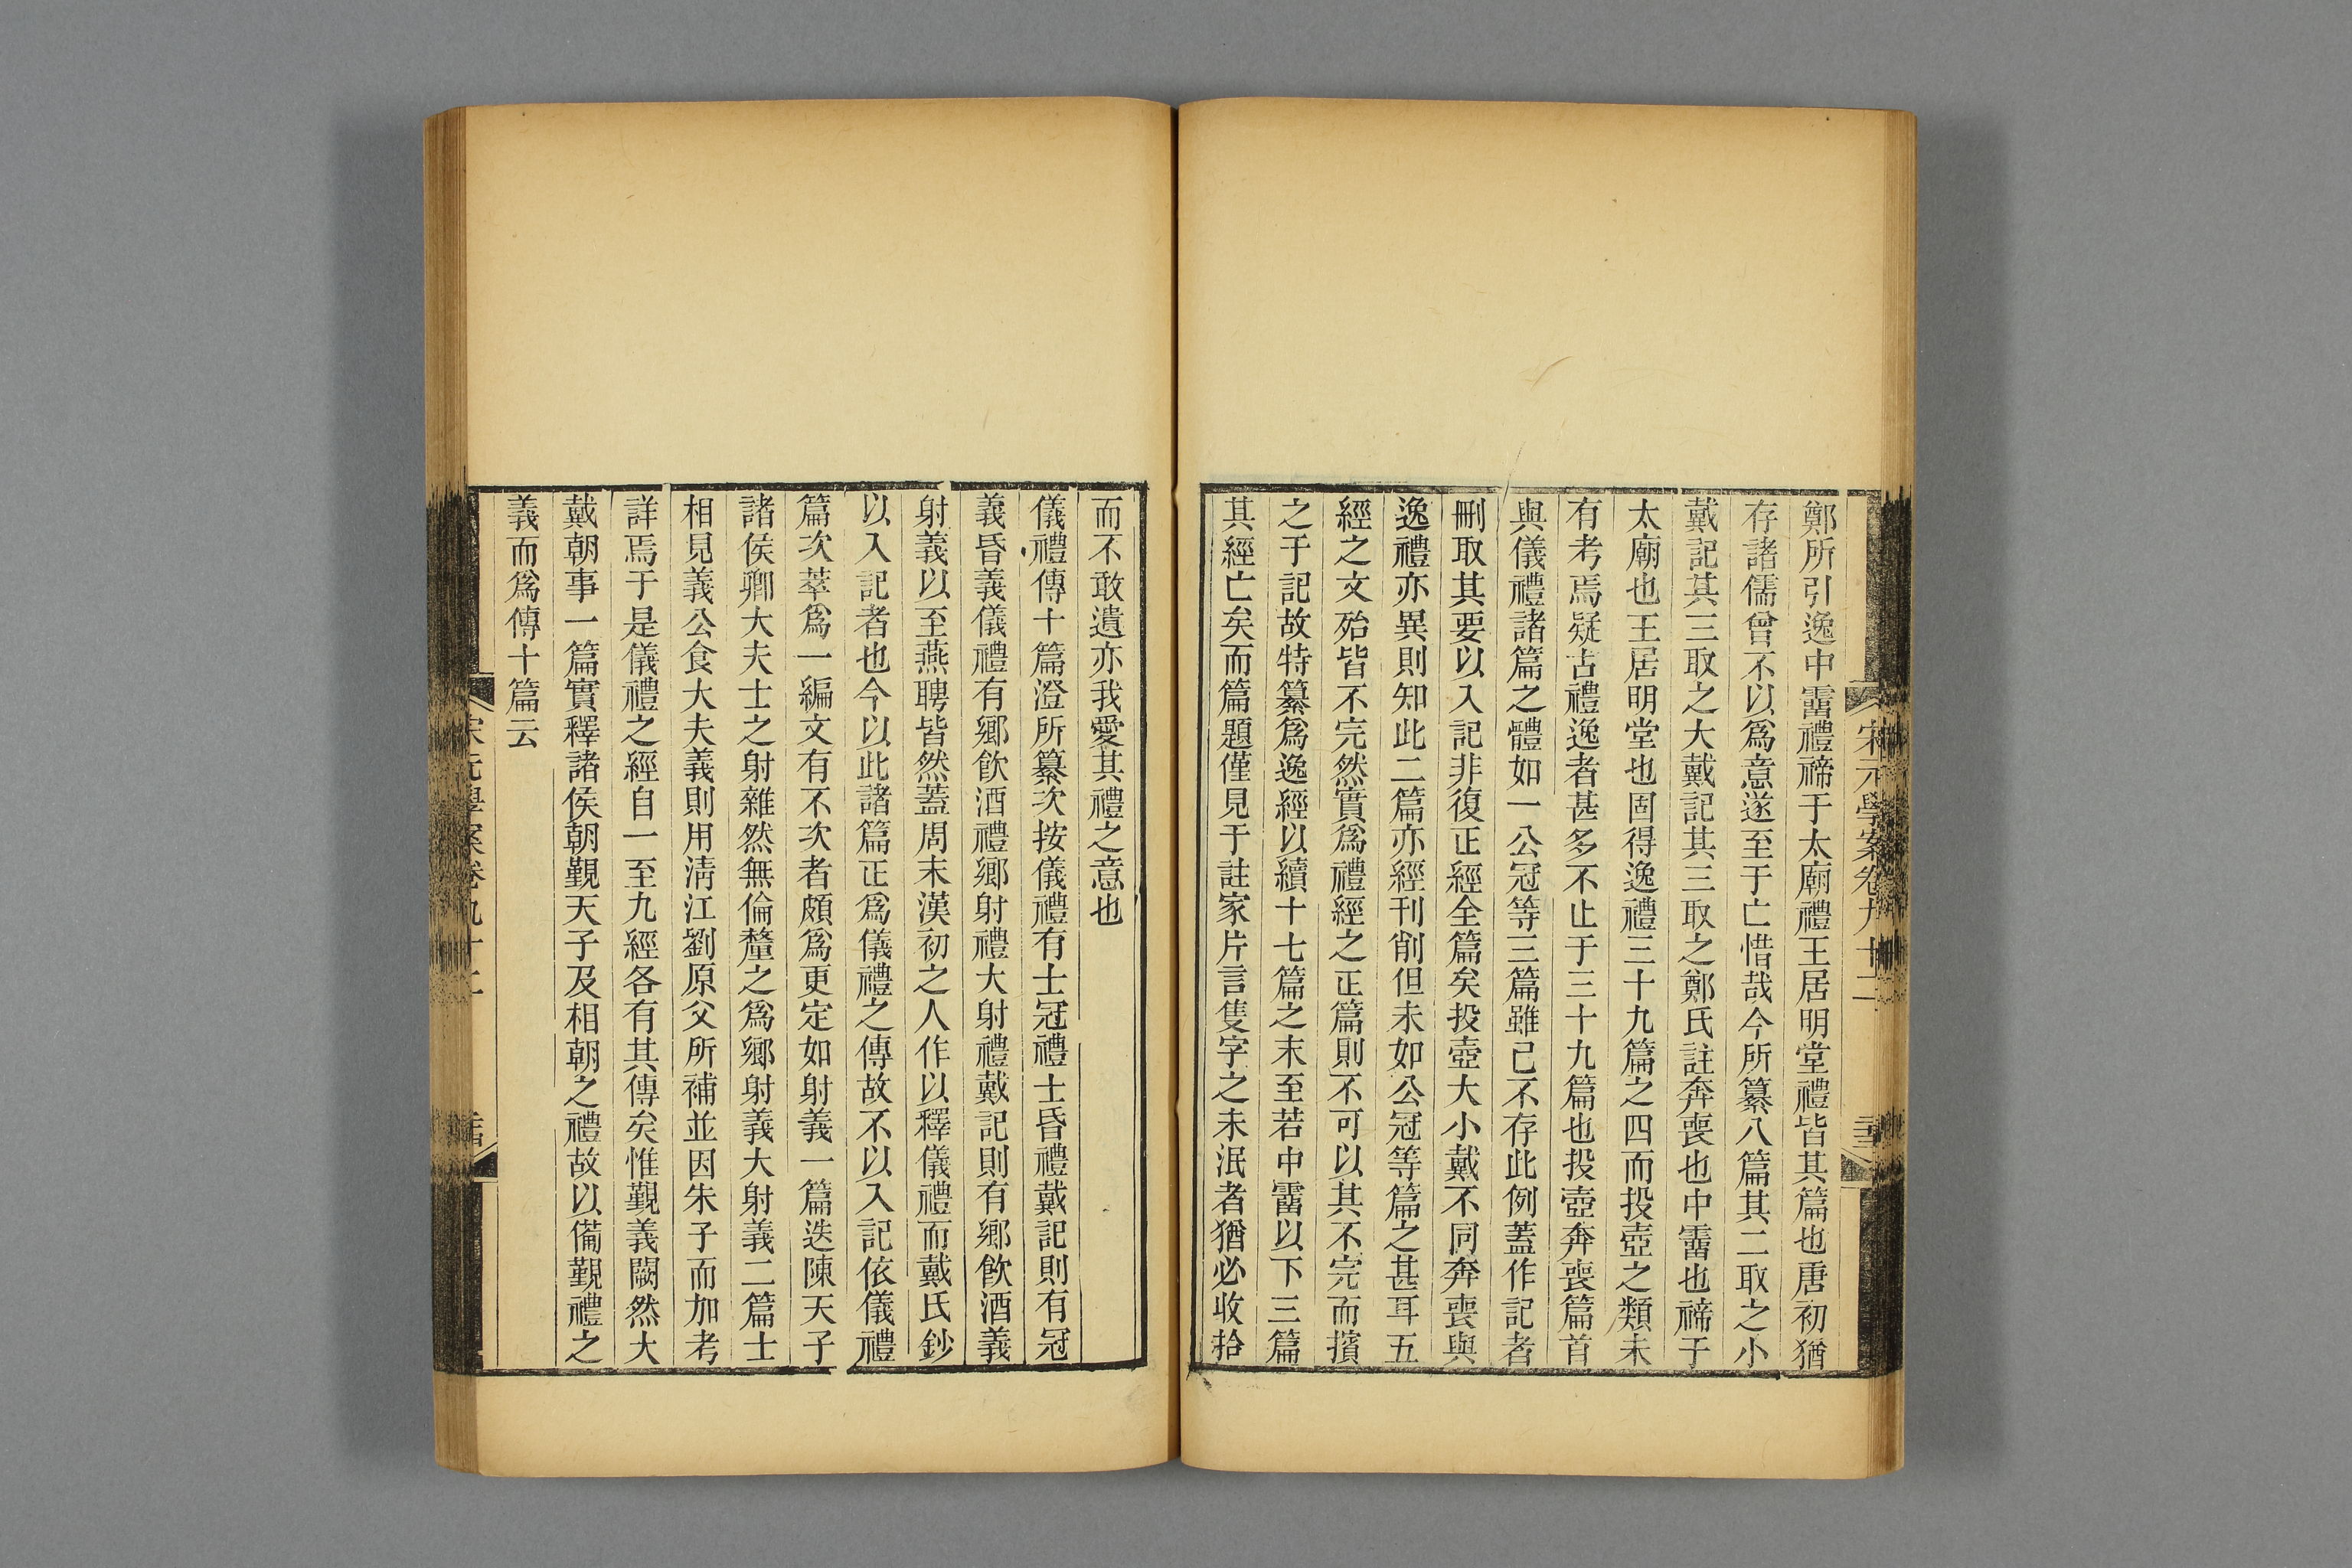 宋元學案卷九十二
鄭所引逸中霤禮禘于太廟禮王居明堂禮皆其篇也唐初猶
存諸儒曾不以爲意遂至于亡惜哉今所纂八篇其二取之小
戴記其三取之大戴記其三取之鄭氏註奔喪也中霤也禘于
太廟也王居明堂也固得逸禮三十九篇之四而投壺之類未
有考焉疑古禮逸者甚多不止于三十九篇也投壺奔喪篇首
與儀禮諸篇之體如一公冠等三篇雖已不存此例蓋作記者
刪取其要以入記非復正經全篇矣投壺大小戴不同奔喪與
逸禮亦異則知此二篇亦經刊削但未如公冠等篇之甚耳五
經之文殆皆不完然實爲禮經之正篇則不可以其不完而擯
之于記故特纂爲逸經以續十七篇之末至若中霤以下三篇
其經亡矣而篇題僅見于註家片言隻字之未泯者猶必收拾
而不敢遺亦我愛其禮之意也
儀禮傳十篇澄所纂次按儀禮有士冠禮士昏禮戴記則有冠
義昏義儀禮有鄉飲酒禮鄉射禮大射禮戴記則有鄉飲酒義
射義以至燕聘皆然蓋周末漢初之人作以釋儀禮而戴氏鈔
以入記者也今以此諸篇正爲儀禮之傳故不以入記依儀禮
篇次萃爲一編文有不次者頗爲更定如射義一篇迭陳天子
諸侯卿大夫士之射雜然無倫釐之爲鄉射義大射義二篇士
相見義公食大夫義則用淸江劉原父所補並因朱子而加考
詳焉于是儀禮之經自一至九經各有其傳矣惟覲義闕然大
戴朝事一篇實釋諸侯朝覲天子及相朝之禮故以備覲禮之
義而爲傳十篇云